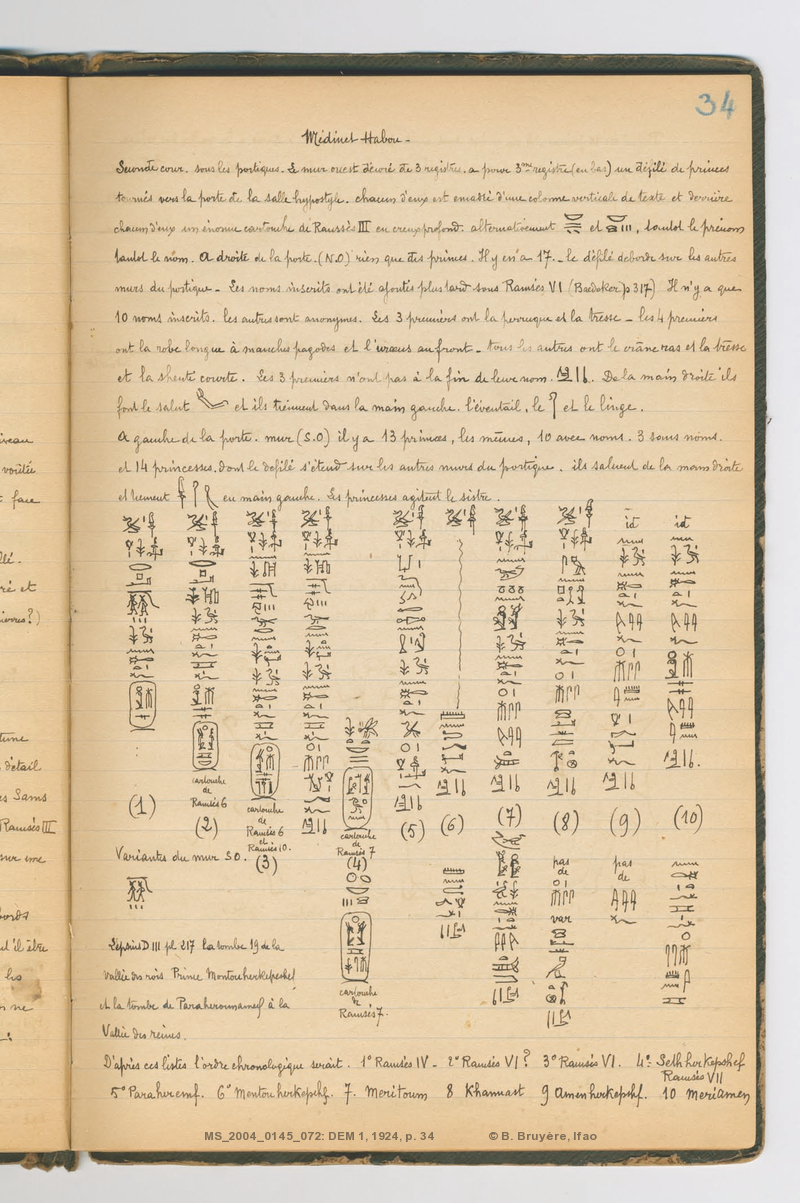 34
Médinet Habou -
Seconde cour. sous les portiques. Le mur ouest décoré de 3 registres. a pour 3me registre (en bas) un défilé de princes
tournés vers la porte de la salle hypostyle. chacun d'eux est précédé d'une colonne verticale de texte et derrière
chacun d'eux un énorme cartouche de Ramsès III en creux profond. alternativement et , tantôt le prénom
tantôt le nom. A droite de la porte. (N.O) rien que des princes. Il y en a 17. - le défilé déborde sur les autres
murs du portique - Les noms inscrits ont été ajoutés plus tard sous Ramsès VI (Baedaker p 317) Il n'y a que
10 noms inscrits. les autres sont anonymes. Les 3 premiers ont la perruque et la tresse - les 4 premiers
ont la robe longue à manches pagodes et l'uræus au front - tous les autres ont le crâne ras et la tresse
et la shenti courte. Les 3 premiers n'ont pas à la fin de leur nom. De la main droite ils
font le salut et ils tiennent dans la main gauche. l'éventail, le et le linge.
A gauche de la porte. mur (S.O) il y a 13 princes, les mêmes, 10 avec noms. 3 sans noms.
et 14 princesses. dont le défilé s'étend sur les autres murs du portique. ils saluent de la main droite
et tiennent en main gauche. Les princesses agitent le sistre.
id id
(1)
cartouche de Ramsès 6
(2)
cartouche de Ramsès 6 et Ramsès 10.
(3)
cartouche de Ramsès 7
(4)
(5) (6) (7) (8) (9) (10)
Variantes du mur SO.
pas de
var
pas de
cartouche de Ramsès 7.
Lepsius D III pl 217 la tombe 19 de la
vallée des rois Prince Montouherkepeshef
et la tombe de Paraherounamef à la
Vallée des reines.
D'après ces listes l'ordre chronologique serait. 1° Ramsès IV - 2° Ramsès VI ? 3° Ramsès VI. 4°. Seth herkepshef
Ramsès VII
5° Paraheremf. 6° Mentou herkepshf. 7. Meritoum 8 Khamuast 9 Amenherkepshf. 10 Meriamen
iveau
voûtée
face
ré et
détail
Sams
Ramsès III
sur une
bords
d'il être
les
MS_2004_0145_072: DEM 1, 1924, p. 34 © B. Bruyère, Ifao